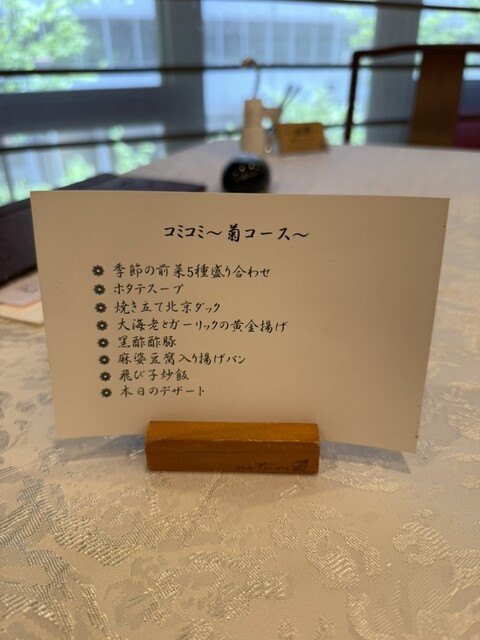 コミコミ～菊コース～
季節の前菜5種盛り合わせ
ホタテスープ
焼き立て北京ダック
大海老とガーリックの黄金揚げ
黒酢酢豚
麻婆豆腐入り揚げパン
飛び子炒飯
本日のデザート